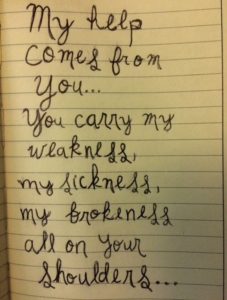 My help
comes from
You...
You carry my
weakness,
my sickness,
my brokeness
all on your
shoulders...